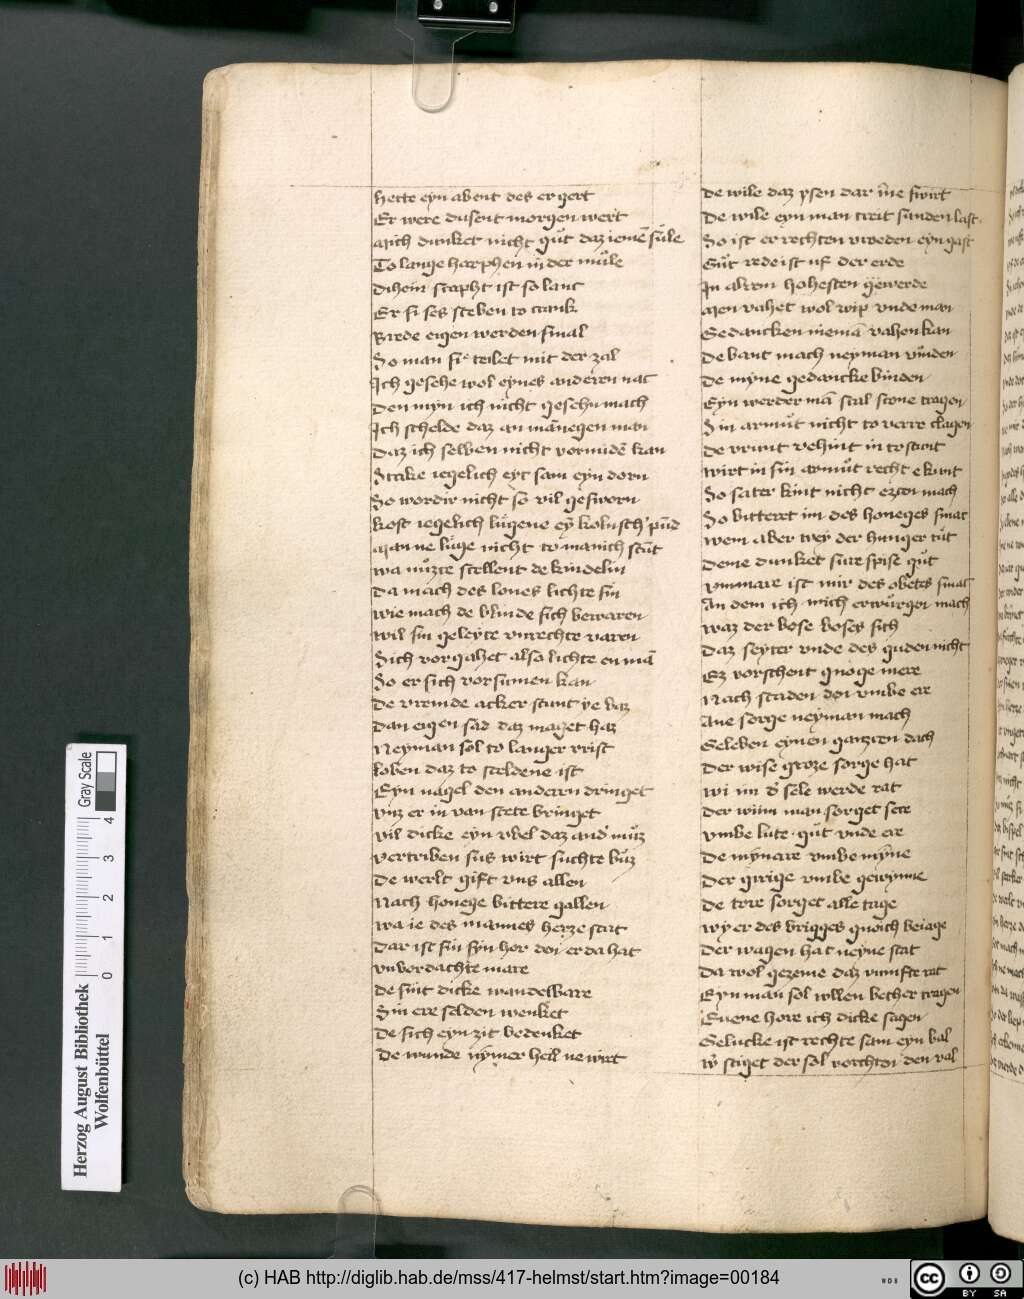 hette eyn abent des er gert
Er were dusent morgen wert
Mich dunket nicht gůt daz ienē sůle
To lange harphen in der můle
Dihein scapht ist so lanc
Er si ses steben to crank
Brede eigen werden smal
So man si teilet mit der zal
Ich gesehe wol eynes anderen nac
Den myn ich nicht gesehn mach
Ich schelde daz an mānegen man
Daz ich selben nicht vormidē kan
Stake iegelich eyt sam eyn dorn
So wordir nicht so vil gesworn
Kost iegelich lůgene eȳ kolnsch pūd
Man ne lůge nicht to manich stūt
Wa můzte stellent de kindelin
Da mach des loues lichte sin
Wie mach de blinde sich bewaren
Wil sin geleyte vnrechte varen
Sich vorgahet also lichte en mā
So er sich vorsumen kan
De vremde acker stunt ye baz
Dan eigen sad daz maget haz
Neyman sol to langer vrist
Loben daz to sceldene ist
Eyn nagel den anderen dringet
Vnz er in van stete bringet
Vil dicke eyn vbel daz and' můz
Vertriben sus wirt suchte bůz
De werlt gift vns allen
Nach honege bittere gallen
Wa ie des mannes herze stat
Dar ist sin syn her den er da hat
Vnbordachte mare
De sint dicke wandelbare
Sin ere selden wenket
De sich eyn zit bedenket
De wunde nymer heil ne wirt
De wile daz ysen dar inne swirt
De wile eyn man treit sunden last
So ist er rechten vroeden eyn gast
Gůt rede ist uf der erde
In allem hohesten gewerde
Men vahet wol wip vnde man
Gedancken niemā vahen kan
De bant mach neyman vinden
De myne gedancke binden
Eyn werder mā scal scone tragen
Sin armůt nicht to verre clagen
De vrunt vehint in tostunt
Wirt in sin armůt recht e kunt
So sater kint nicht ezcen mach
So bitteret im des honeges smac
Wem aber wey der hunger tůt
Deme dunket sure spise gůt
Vnmare ist mir des obetes smac
An dem ich mich erwůrgen mach
Waz der bose boses sich
Daz seyter vnde des guden nicht
Ez vorschent gnoge mere
Nach scaden den vmbe ere
Ane sorge neyman mach
Geleben eynen ganzcen dach
Der wise groze sorge hat
Wi im d' sele werde rat
Der wim man sorget sere
Vmbe lute gůt vnde ere
De mynere vmbe myne
Der girige vmbe gewynne
De tore sorget alle tage
Wy er des brigges gnoich beiage
Der wagen hat neyne stat
Da wol gezeme daz vumfte rat
Eyn man sol wllen becher tragen
Euene hore ich dicke sagen
Gelucke ist rechte sam eyn bal
W' stiget der sol vorchten den val
Gray Scale
0 1 2 3 4
Herzog August Bibliothek
Wolfenbüttel
(c) HAB http://diglib.hab.de/mss/417-helmst/start.htm?image=00184
WDB
cc BY SA